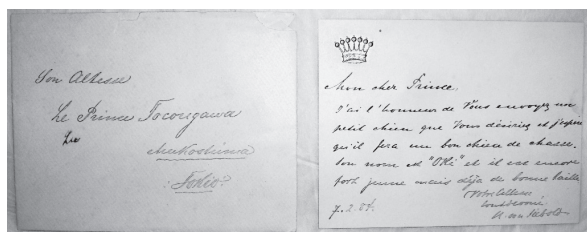 Son Altesse
Le Prince Tocougawa
Mukoshima
Tokio
Mon cher Prince.
J'ai l'honneur de Vous envoyer un
petit chien que Vous désiriez et j'espère
qu'il fera un bon chien de chasse.
Son nom est "Othi" et il est encore
fort jeune mais déja de bonne taille
Votre
dévoué
H. von Siebold
7. 2.